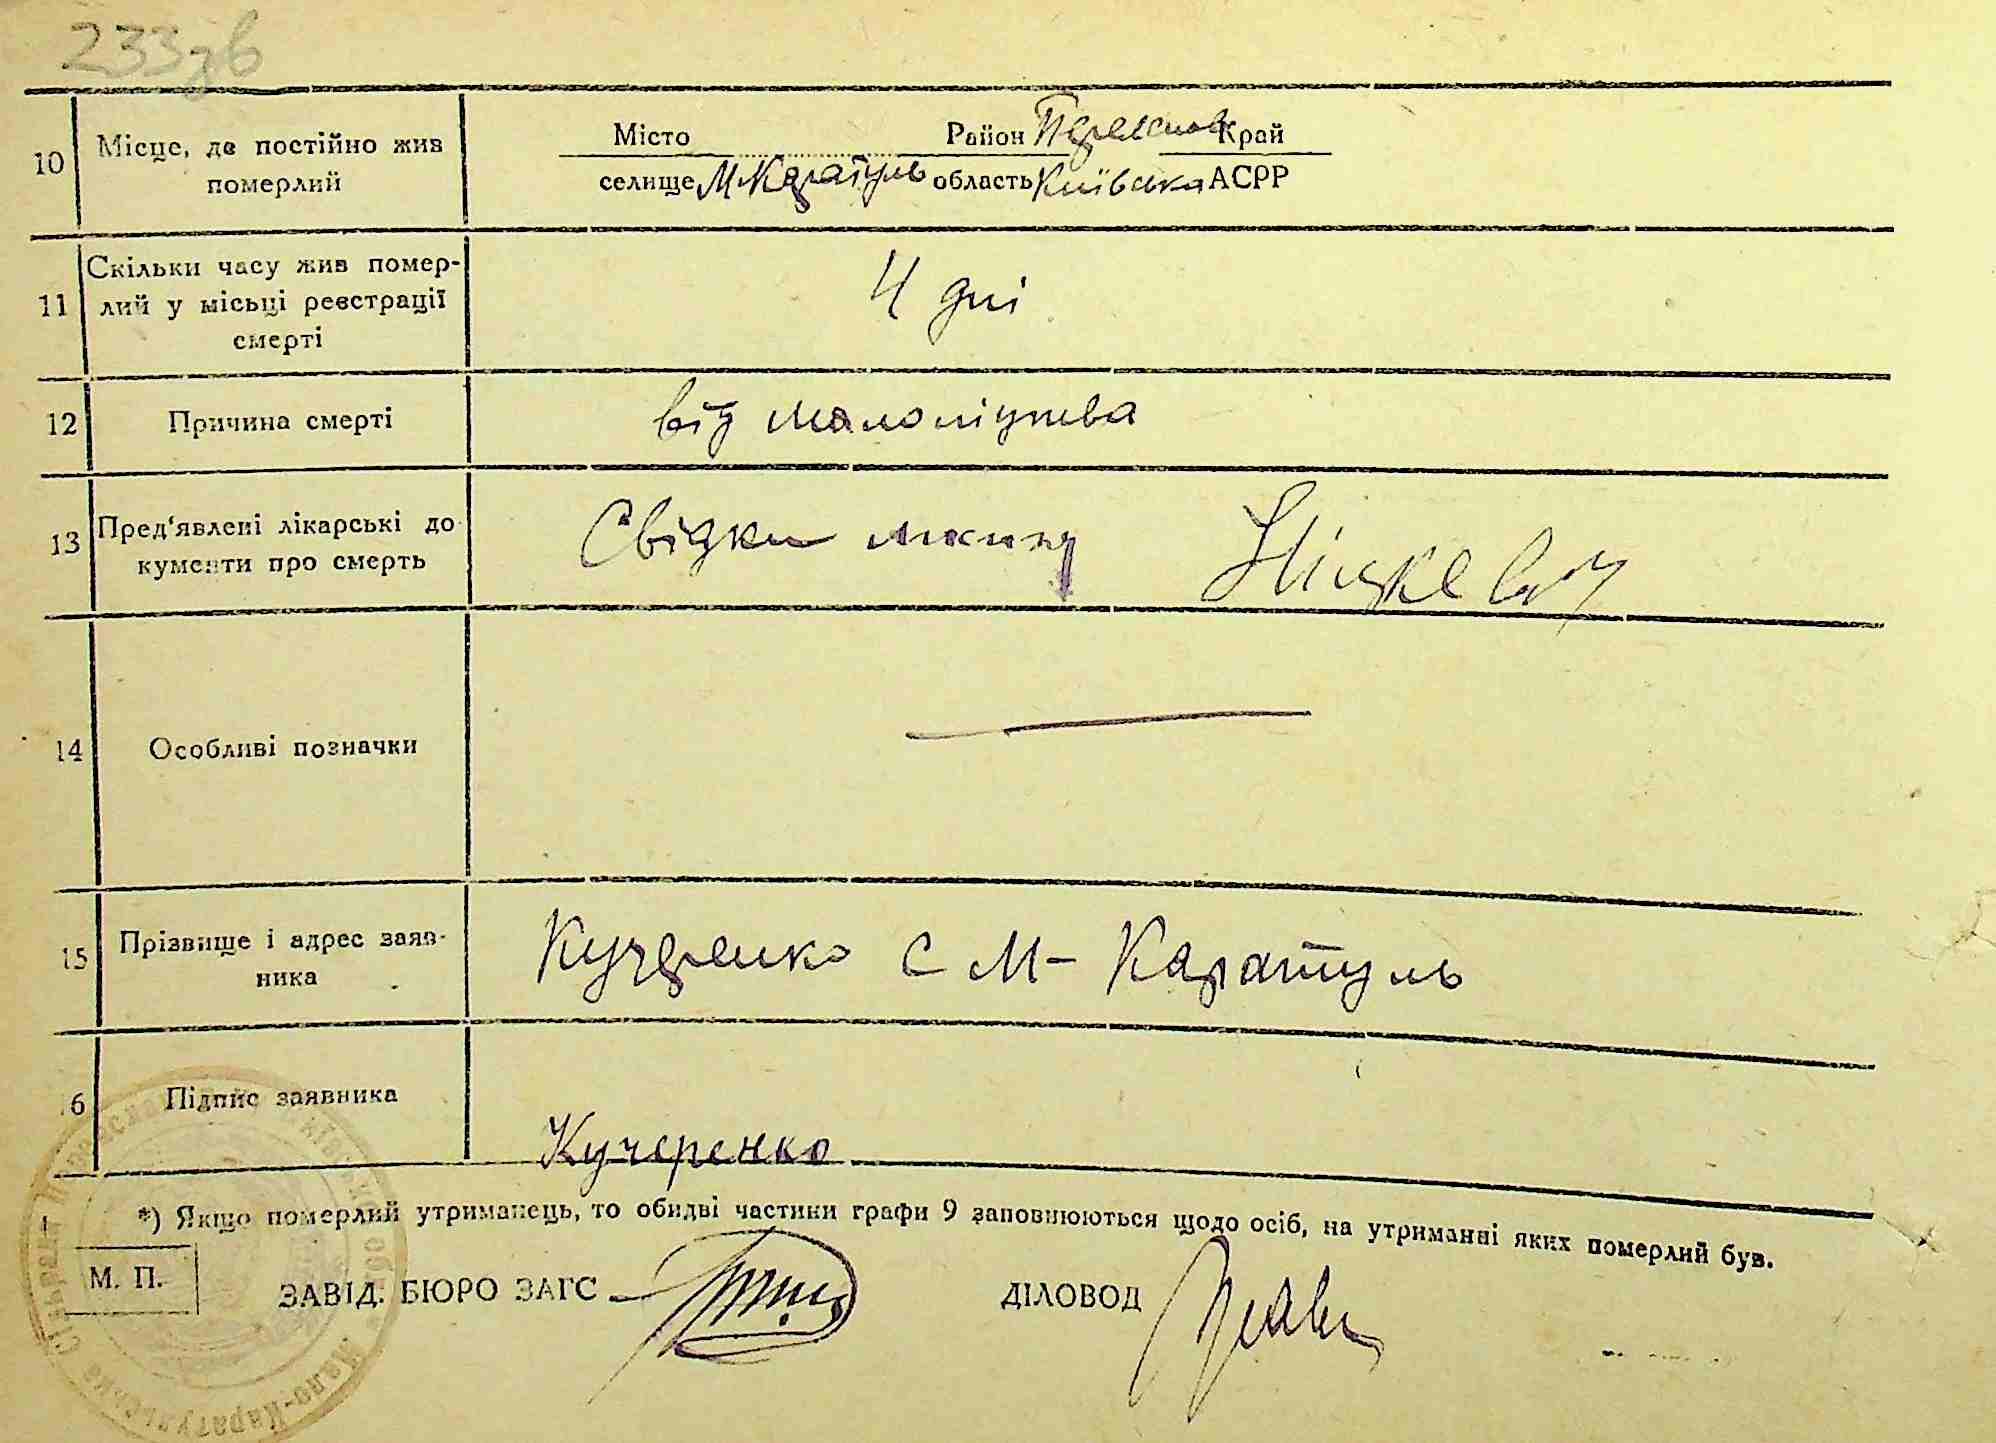 233зв
10 Місце, де постійно жив померлий
Місто Район Переяслов Край
селище М Каратуль область Київська АСРР
11 Скільки часу жив помер-
лий у місці реєстрації
смерті
4 дні
12 Причина смерті
від малоліцтва
13 Пред'явлені лікарські до
кументи про смерть
Свідки
14 Особливі позначки
15 Прізвище і адрес заяв-
ника
Кучеренко с М-Каратуль
16 Підпис заявника
Кучеренко
*) Якщо померлий утриманець, то обидві частини графи 9 заповнюються щодо осіб, на утриманні яких померлий був.
М. П.
ЗАВІД. БЮРО ЗАГС
ДІЛОВОД
Мало-Каратульська Сільрада